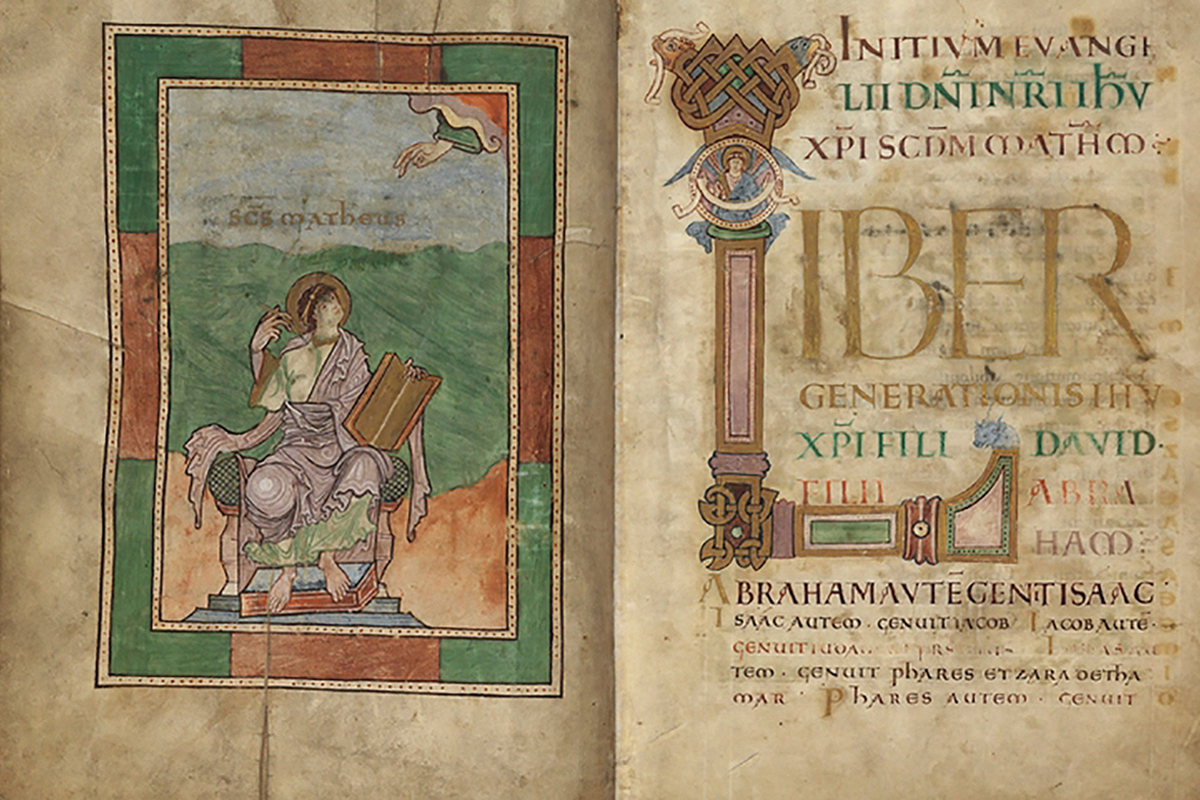 SCS MATHEUS
INITIUM EVANGE
LII DNI NRI IHU
XPI SCDM MATHM:
LIBER
GENERATIONIS IHU
XPI FILI DAVID·
FILII ABRA
HAM:
ABRAHAM AUTE GENT ISAAC·
ISAAC AUTEM · GENUIT IACOB IACOB AUTE·
GENUIT IUDA
TEM · GENUIT PHARES ET ZARA DE THA
MAR PHARES AUTEM · GENUIT